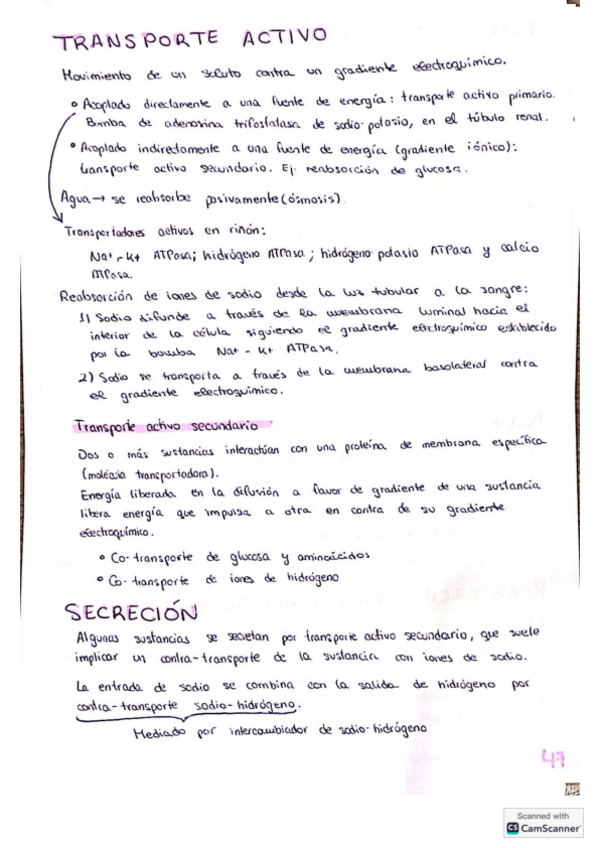 TRANSPORTE ACTIVO
Movimiento de un soluto contra un gradiente electroquímico.
• Acoplado directamente a una fuente de energía: transporte activo primario.
Bomba de adenosina trifosfatasa de sodio-potasio, en el túbulo renal.
• Acoplado indirectamente a una fuente de energía (gradiente iónico):
transporte activo secundario. Ej. reabsorción de glucosa.
Agua → se reabsorbe posivamente (ósmosis)
Transportadores activos en riñón:
Na+ - K+ ATPasa; hidrógeno ATPasa; hidrógeno-potasio ATPasa y calcio
ATPasa.
Reabsorción de iones de sodio desde la luz tubular a la sangre:
1) Sodio difunde a través de la membrana luminal hacia el
interior de la célula siguiendo el gradiente electroquímico establecido
por la bomba Na+ - K+ ATPasa.
2) Sodio se transporta a través de la membrana basolateral contra
el gradiente electroquímico.
Transporte activo secundario
Dos o más sustancias interactúan con una proteína de membrana específica
(molécula transportadora).
Energía liberada en la difusión a favor de gradiente de una sustancia
libera energía que impulsa a otra en contra de su gradiente
electroquímico.
• Co-transporte de glucosa y aminoácidos
• Co-transporte de iones de hidrógeno
SECRECIÓN
Algunas sustancias se secretan por transporte activo secundario, que suele
implicar un contra-transporte de la sustancia con iones de sodio.
La entrada de sodio se combina con la salida de hidrógeno por
contra-transporte sodio-hidrógeno.
Mediado por intercambiador de sodio-hidrógeno
47
Scanned with
CS CamScanner